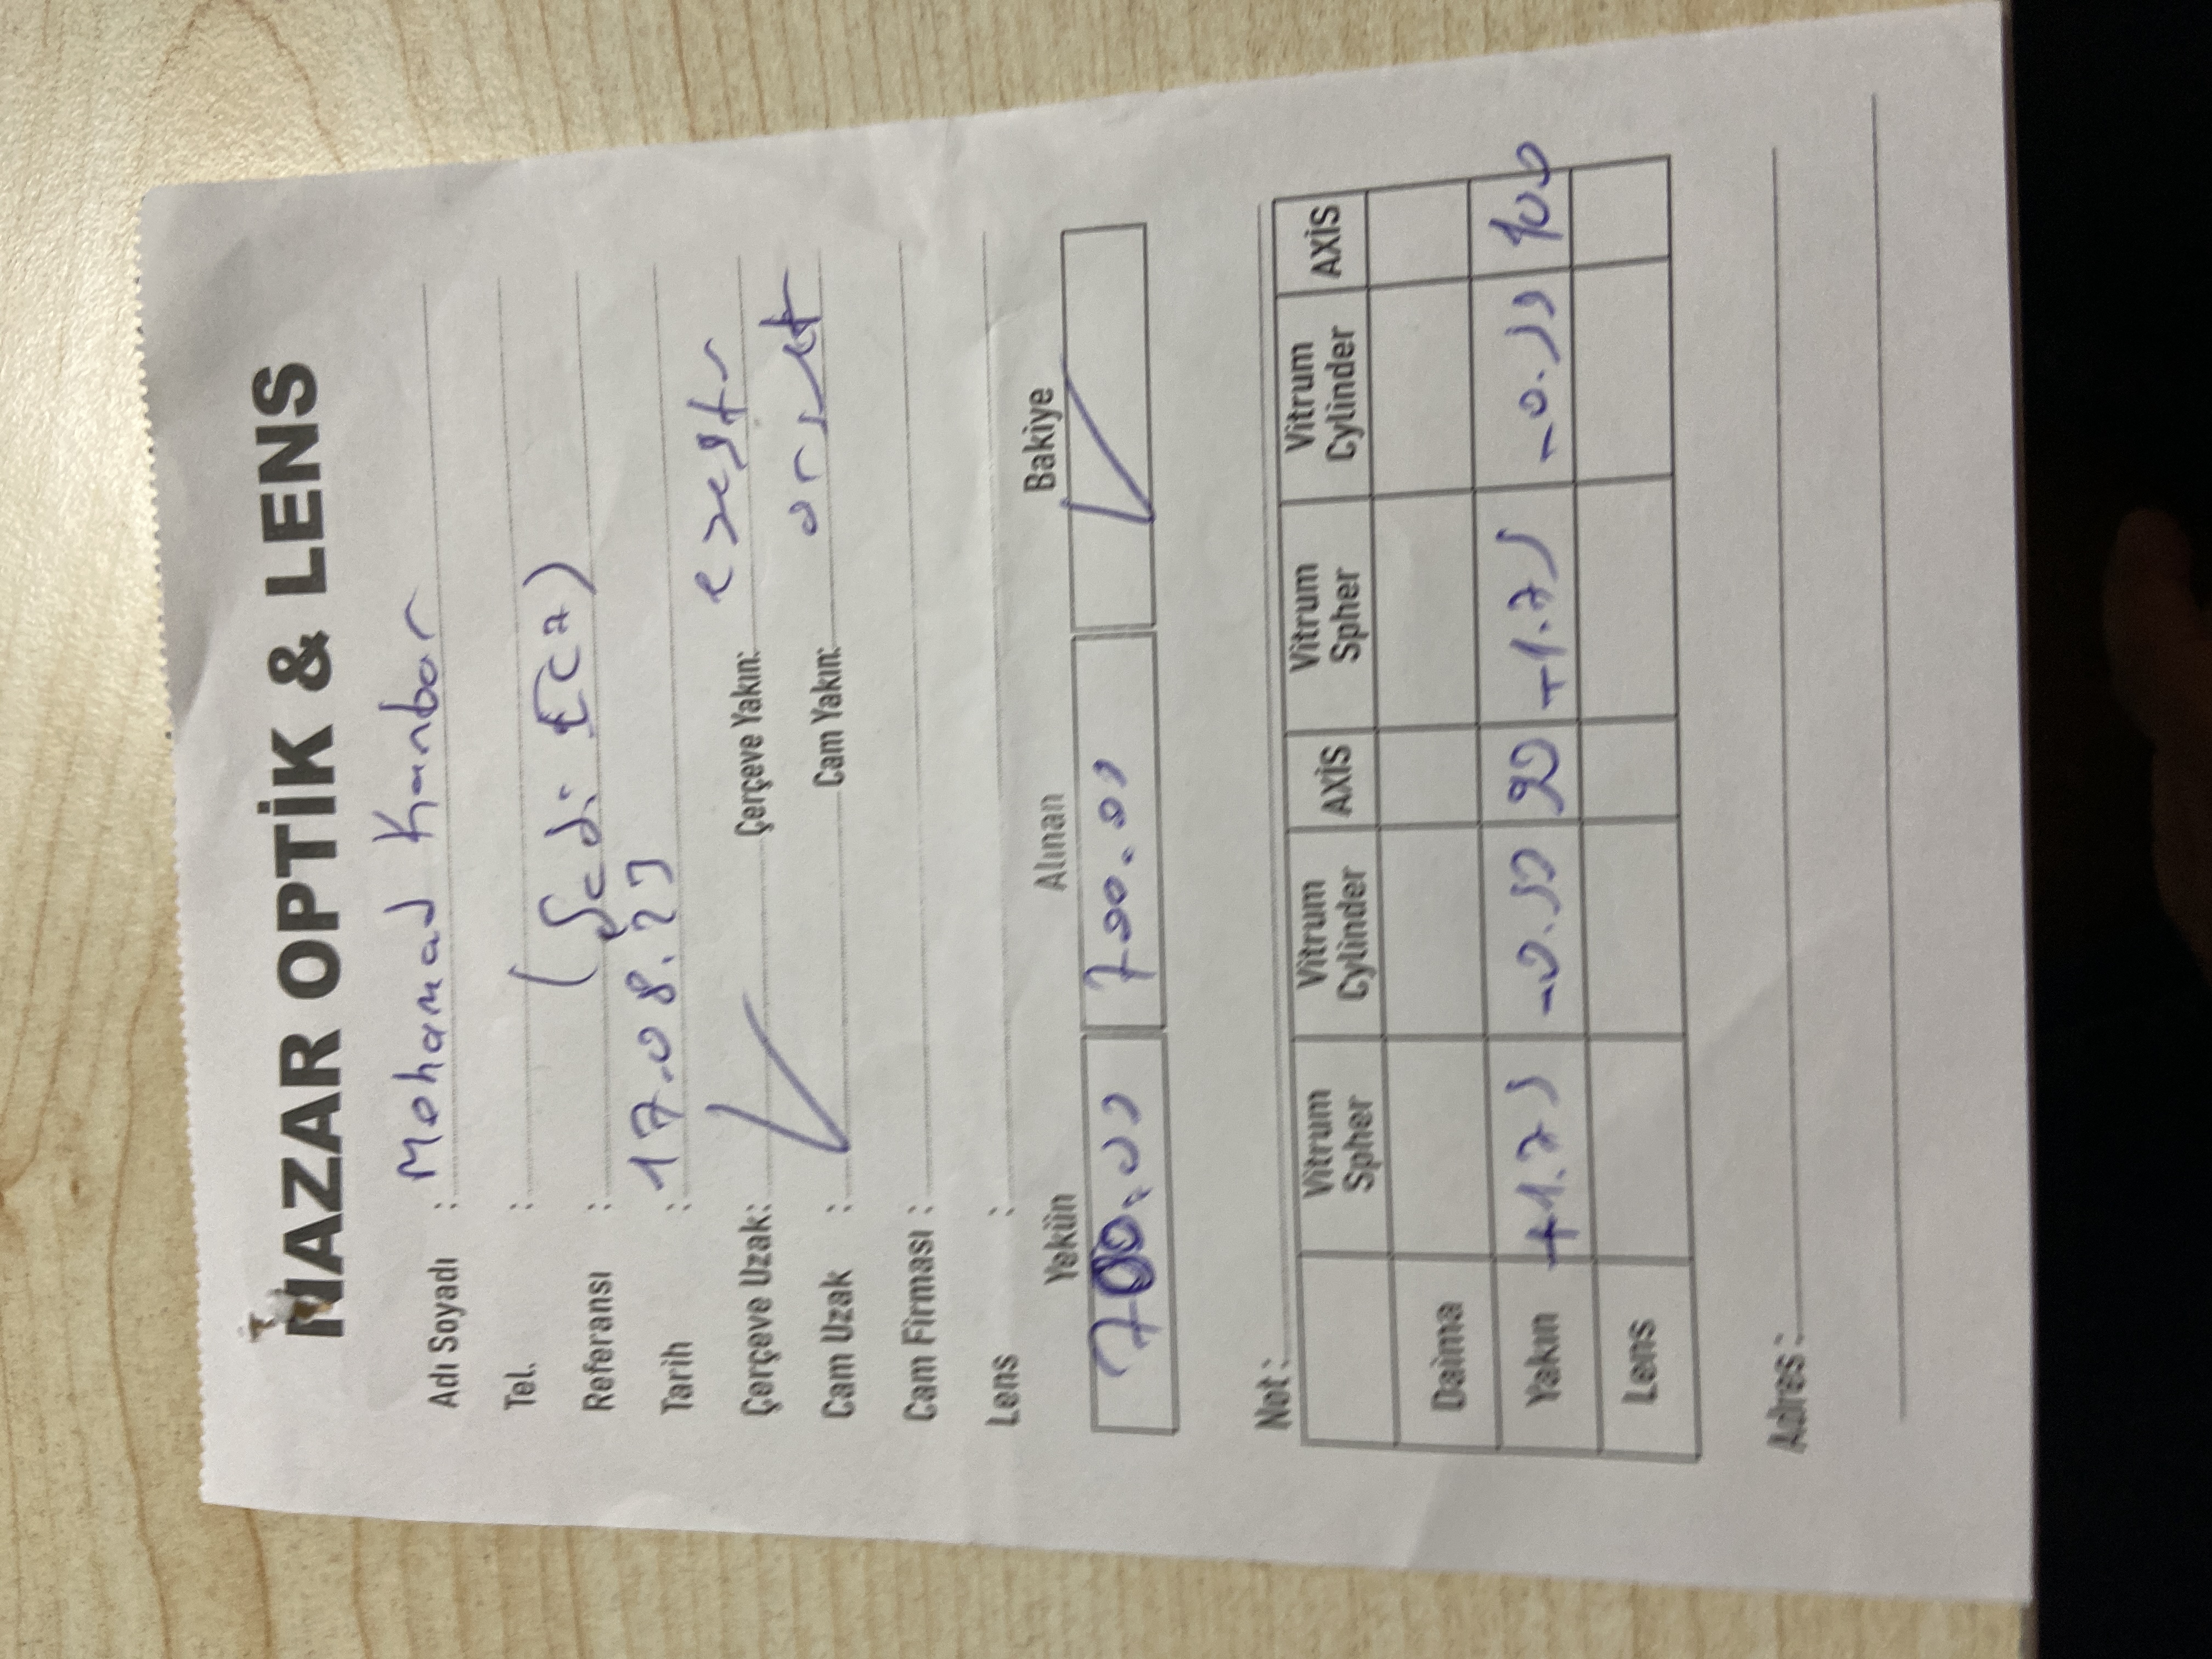 NAZAR OPTİK & LENS
Adı Soyadı : Mohamad Kanbar
Tel. :
Referansı : (Sadi
Tarih : 17.08.23
Çerçeve Uzak: Çerçeve Yakın:
Cam Uzak : Cam Yakın:
Cam Firması :
Lens :
Yekün Alınan Bakiye
700.00 700.00
Not :
Vitrum Spher Vitrum Cylinder AXİS Vitrum Spher Vitrum Cylinder AXİS
Daima
Yakın +1.75 -0.50 90 +1.75 -0.50 100
Lens
Adres :